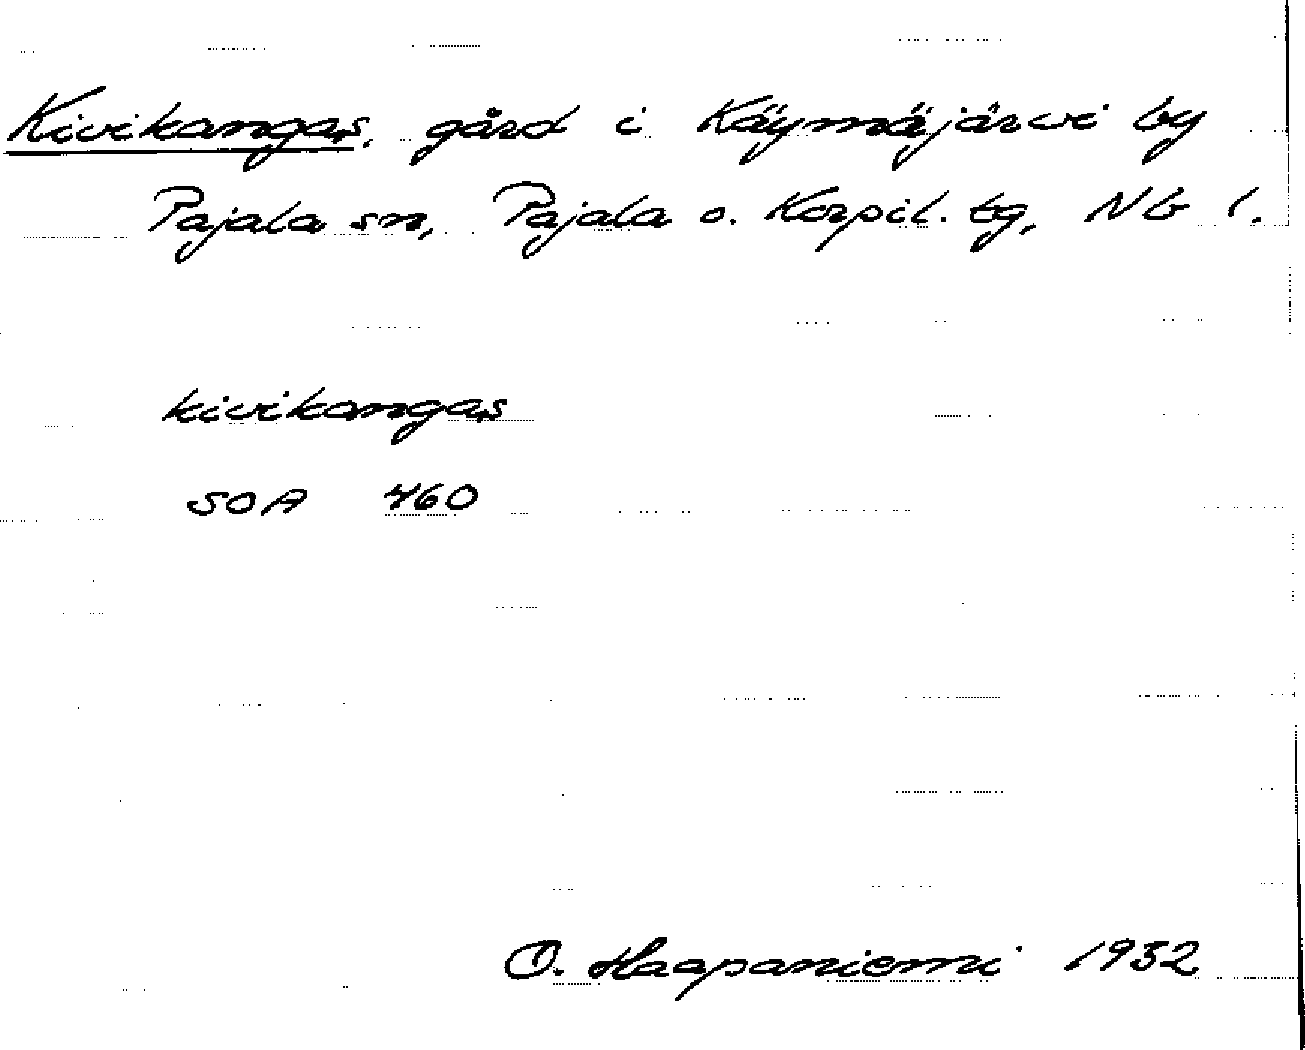 Kivikangas, gård i Käymäjärvi by
Pajala sn, Pajala o. Korpil. tg, Nb l.
kivikangas
SOA 460
O. Haapaniemi 1932